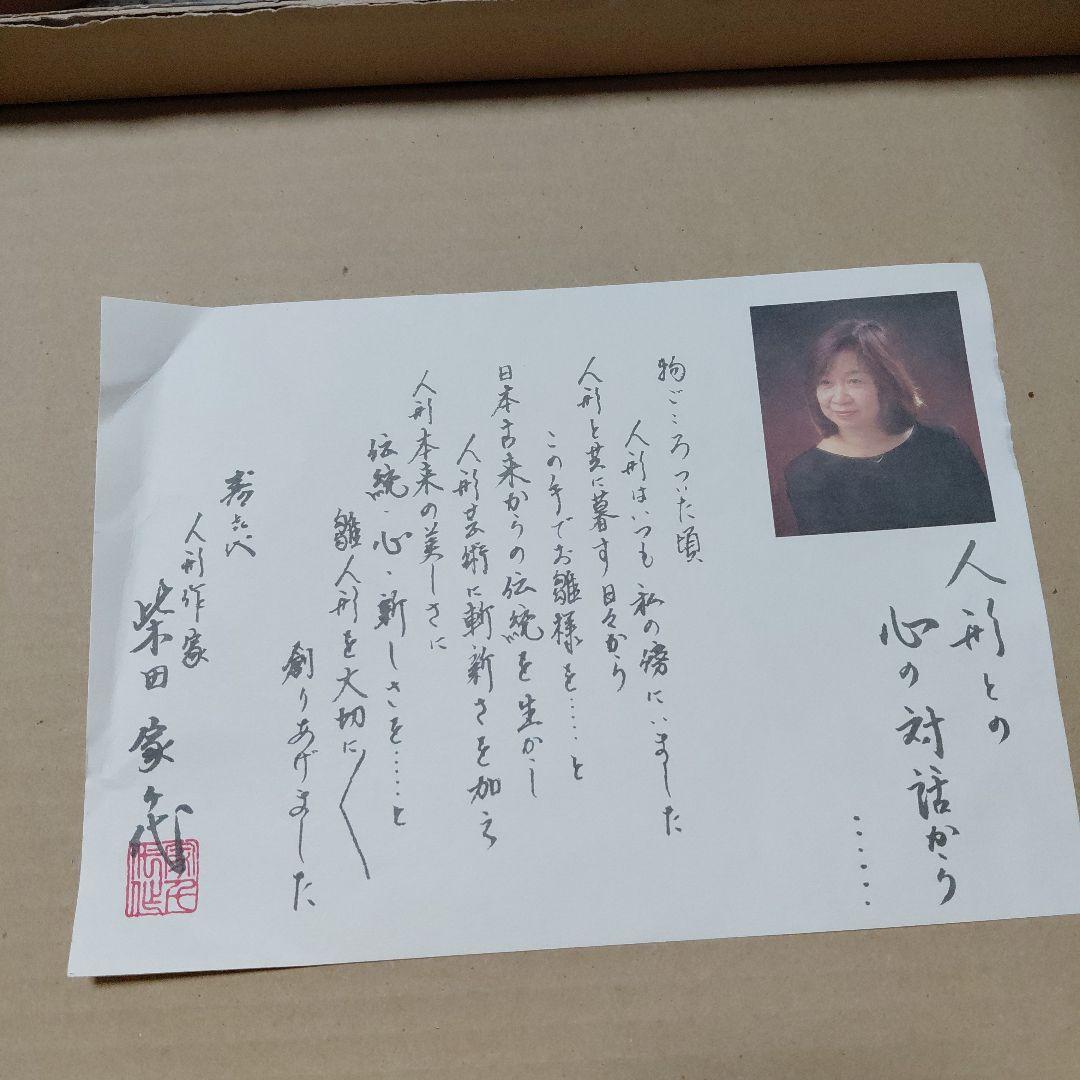 人形との
心の対話から
……
物ごころついた頃
人形はいつも私の傍にいました
人形と共に暮す日々から
この手でお雛様を……と
日本古来からの伝統を生かし
人形芸術に斬新さを加え
人形本来の美しさに
伝統・心・新しさを……と
雛人形を大切に〳〵
創りあげました
寿喜代
人形作家
柴田家千代